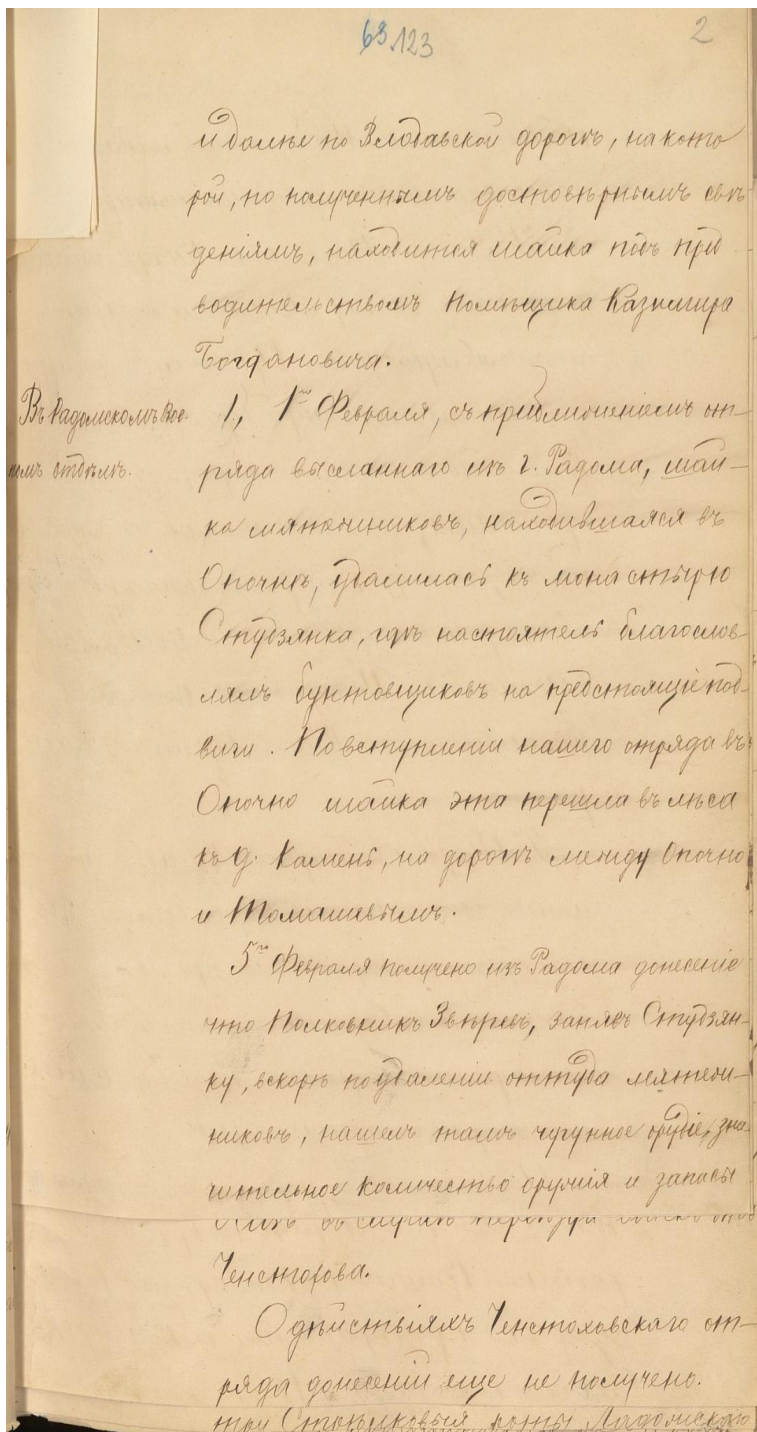 63.123
2
и далѣе по Влодавской дорогѣ, на кото
рой, по полученнымъ достовѣрнымъ свѣ
деніямъ, находится шайка подъ пред
водительствомъ помѣщика Казимира
Богдановича.
Въ Радомскомъ Вое-
номъ отдѣлѣ.
1, 1го Февраля, съ приближеніемъ от-
ряда высланнаго изъ г. Радома, шай-
ка мятежниковъ, находившаяся въ
Опочнѣ, удалилась къ монастырю
Студзянка, гдѣ настоятель благослов-
лялъ бунтовщиковъ на предстоящіе под-
виги. По вступленіи нашего отряда въ
Опочно шайка эта перешла въ лѣса
къ д. Камень, на дорогѣ между Опочно
и Томашевымъ.
5го Февраля получено изъ Радома донесеніе
что Полковникъ Звѣревъ, занявъ Студзян-
ку, вскорѣ по удаленіи оттуда мятеж-
никовъ, нашелъ тамъ чугунное орудіе, зна-
чительное количество оружія и запасы
Ченстохова.
О дѣйствіяхъ Ченстоховскаго от-
ряда донесеній еще не получено.
три Стрѣлковыя роты Ладожскаго